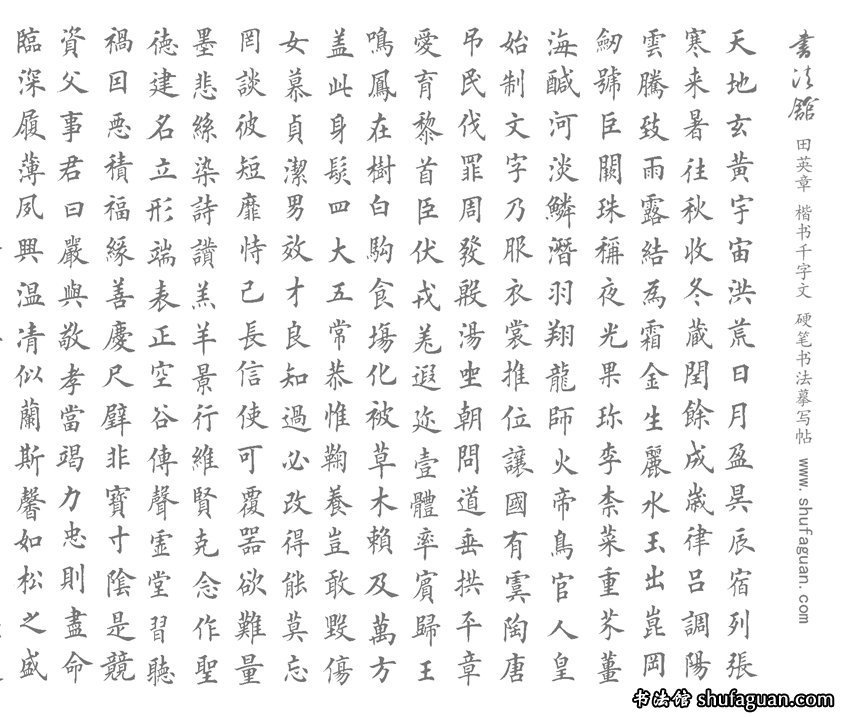 书法馆 田英章 楷书千字文 硬笔书法摹写帖 www.shufaguan.com
天地玄黃宇宙洪荒日月盈昃辰宿列張
寒来暑往秋收冬藏閏餘成歲律吕調陽
雲騰致雨露結為霜金生麗水玉出崑岡
劒號巨闕珠稱夜光果珎李柰菜重芥薑
海醎河淡鱗潛羽翔龍師火帝鳥官人皇
始制文字乃服衣裳推位讓國有虞陶唐
吊民伐罪周發殷湯坐朝問道垂拱平章
愛育黎首臣伏戎羌遐迩壹體率賓歸王
鳴鳳在樹白駒食塲化被草木賴及萬方
盖此身髮四大五常恭惟鞠養豈敢毀傷
女慕貞潔男效才良知過必改得能莫忘
罔談彼短靡恃己長信使可覆器欲難量
墨悲絲染詩讃羔羊景行維賢克念作聖
德建名立形端表正空谷傳聲虛堂習聽
禍因惡積福緣善慶尺璧非寶寸陰是競
資父事君曰嚴與敬孝當竭力忠則盡命
臨深履薄夙興温凊似蘭斯馨如松之盛
书法馆 shufaguan.com